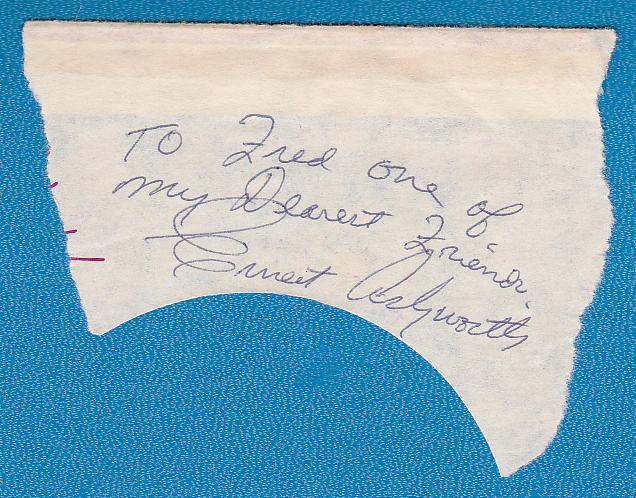 TO Fred one of
my Dearest Friends
Ernest Ashworth